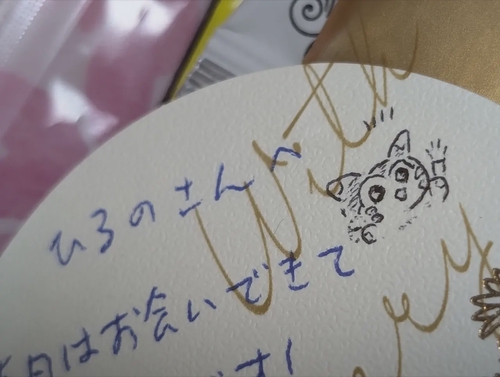 With
ひろのさんへ
今日はお会いできて